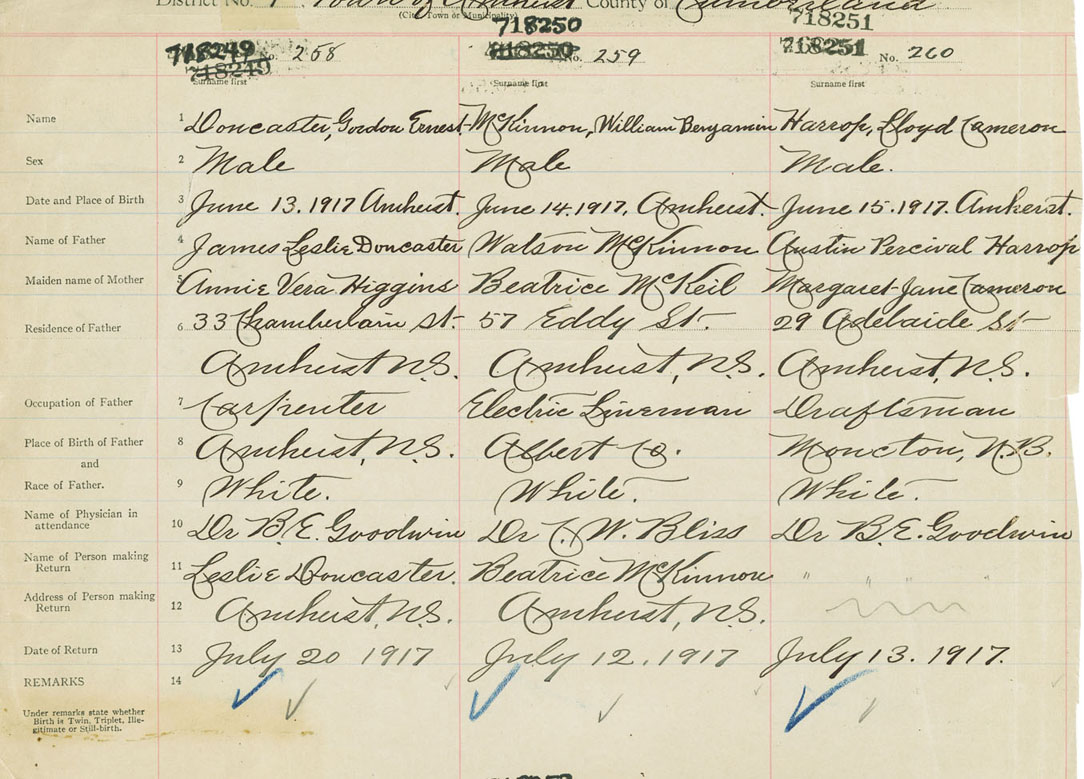 District No. 1. Town of Amherst County of Cumberland
(City, Town or Municipality)
718249 718250 718251
718249 No. 258 718250 No. 259 718251 No. 260
Surname first Surname first Surname first
Name 1 Doncaster, Gordon Ernest McKinnon, William Benjamin Harrop, Lloyd Cameron
Sex 2 Male Male Male.
Date and Place of Birth 3 June 13. 1917 Amherst. June 14. 1917, Amherst. June 15. 1917. Amherst.
Name of Father 4 James Leslie Doncaster Watson McKinnon Austin Percival Harrop
Maiden name of Mother 5 Annie Vera Higgins Beatrice McKeil Margaret Jane Cameron
Residence of Father 6 33 Chamberlain St. 57 Eddy St. 29 Adelaide St
Amherst N.S. Amherst, N.S. Amherst, N.S.
Occupation of Father 7 Carpenter Electric Lineman Draftsman
Place of Birth of Father 8 Amherst, N.S. Albert Co. Moncton, N.B.
and
Race of Father. 9 White. White. White.
Name of Physician in attendance 10 Dr B.E. Goodwin Dr C. W. Bliss Dr B.E. Goodwin
Name of Person making Return 11 Leslie Doncaster. Beatrice McKinnon " " " "
Address of Person making Return 12 Amherst, N.S. Amherst, N.S.
Date of Return 13 July 20 1917 July 12. 1917 July 13. 1917.
REMARKS 14
Under remarks state whether
Birth is Twin, Triplet, Ille-
gitimate or Still-birth.